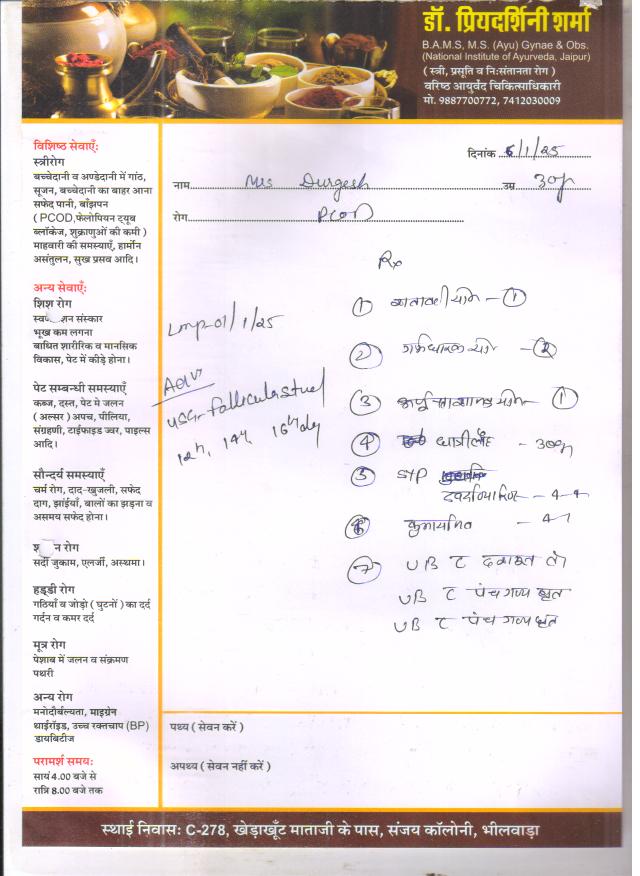 डॉ. प्रियदर्शिनी शर्मा
B.A.M.S, M.S. (Ayu) Gynae & Obs.
(National Institute of Ayurveda, Jaipur)
( स्त्री, प्रसूति व निःसंतानता रोग )
वरिष्ठ आयुर्वेद चिकित्साधिकारी
मो. 9887700772, 7412030009
दिनांक 6/1/25
नाम Mrs Durgesh उम्र 30y
रोग PCOD
विशिष्ठ सेवाएँ:
स्त्रीरोग
बच्चेदानी व अण्डेदानी में गांठ,
सूजन, बच्चेदानी का बाहर आना
सफेद पानी, बाँझपन
( PCOD,फेलोपियन ट्यूब
ब्लॉकेज, शुक्राणुओं की कमी )
माहवारी की समस्याएँ, हार्मोन
असंतुलन, सुख प्रसव आदि।
अन्य सेवाएं:
शिशु रोग
संस्कार
भूख कम लगना
बाधित शारीरिक व मानसिक
विकास, पेट में कीड़े होना।
पेट सम्बन्धी समस्याएँ
कब्ज, दस्त, पेट मे जलन
( अल्सर ) अपच, पीलिया,
संग्रहणी, टाईफाइड ज्वर, पाइल्स
आदि।
सौन्दर्य समस्याएँ
चर्म रोग, दाद-खुजली, सफेद
दाग, झांईयाँ, बालों का झड़ना व
असमय सफेद होना।
रोग
सर्दी जुकाम, एलर्जी, अस्थमा।
हड्डी रोग
गठियाँ व जोड़ो ( घुटनों ) का दर्द
गर्दन व कमर दर्द
मूत्र रोग
पेशाब में जलन व संक्रमण
पथरी
अन्य रोग
मनोदौर्बल्यता, माइग्रेन
थाईरॉइड, उच्च रक्तचाप (BP)
डायबिटीज
परामर्श समय:
सायं 4.00 बजे से
रात्रि 8.00 बजे तक
Lmp 01/1/25
Adv
USG-Follicular
12th, 14th, 16th day
Rx
① शतावरी - ①
② गर्भधारक योग - ②
③ - ①
④ धात्रीलौह - 30
⑤ SYP
- 4-4
⑥ - 4-
⑦ UB c
UB c पंचगव्य घृत
UB c पंचगव्य घृत
पथ्य ( सेवन करें )
अपथ्य ( सेवन नहीं करें )
स्थाई निवास: C-278, खेड़ाखूँट माताजी के पास, संजय कॉलोनी, भीलवाड़ा